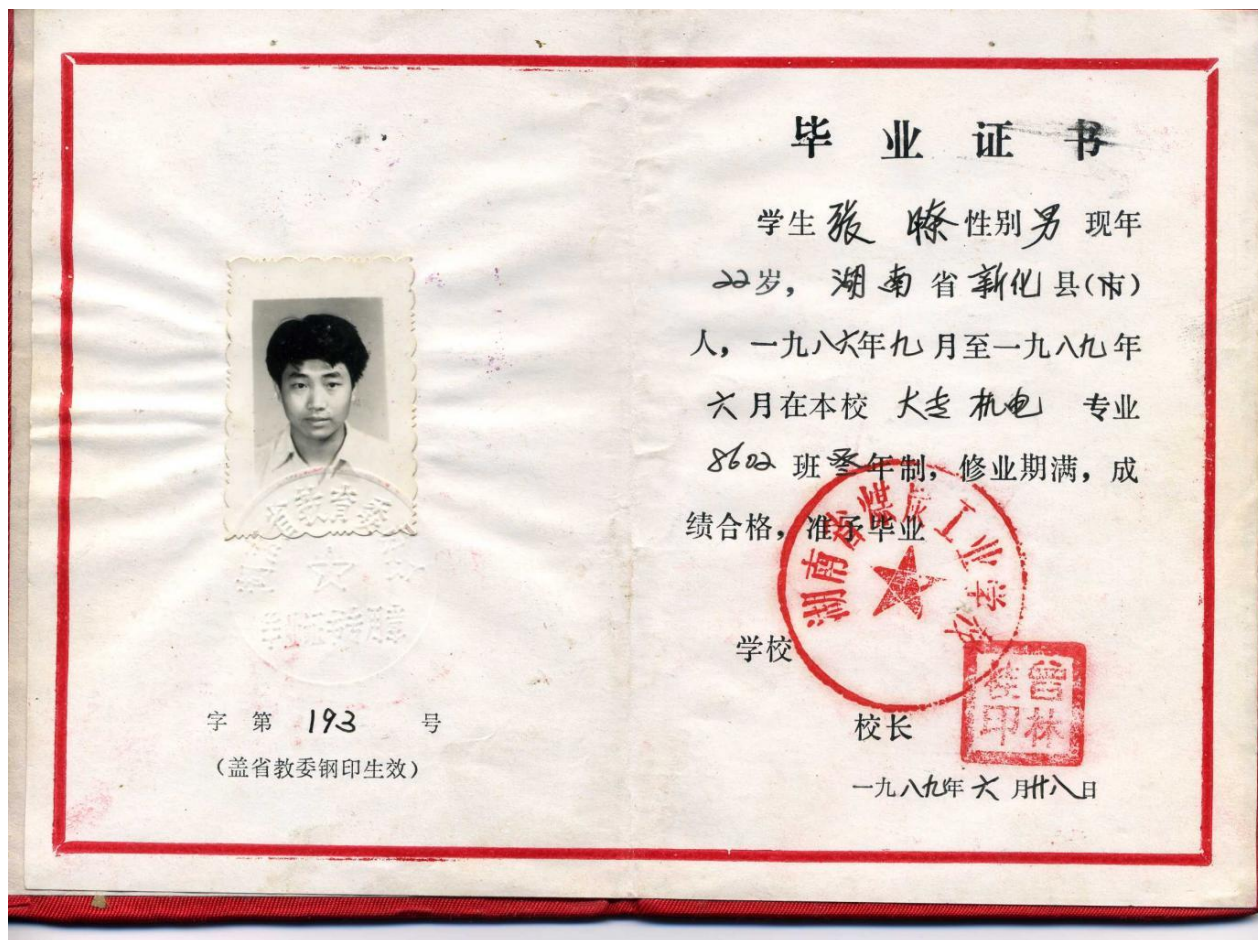 字 第 193 号
(盖省教委钢印生效)
毕业证书
学生 张 性别 男 现年
22岁, 湖南省新化县(市)
人, 一九八六年九月至一九八九年
六月在本校 机电 专业
8602 班 叁年制, 修业期满, 成
绩合格, 准予毕业
湖南省煤炭工业学校
学校
校长
一九八九年六月廿八日